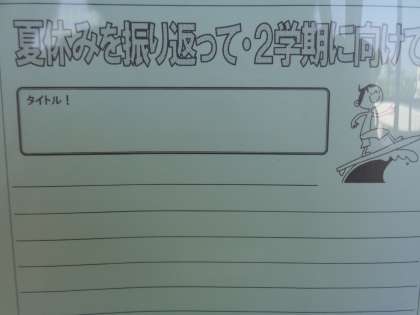 夏休みを振り返って・2学期に向けて
タイトル！